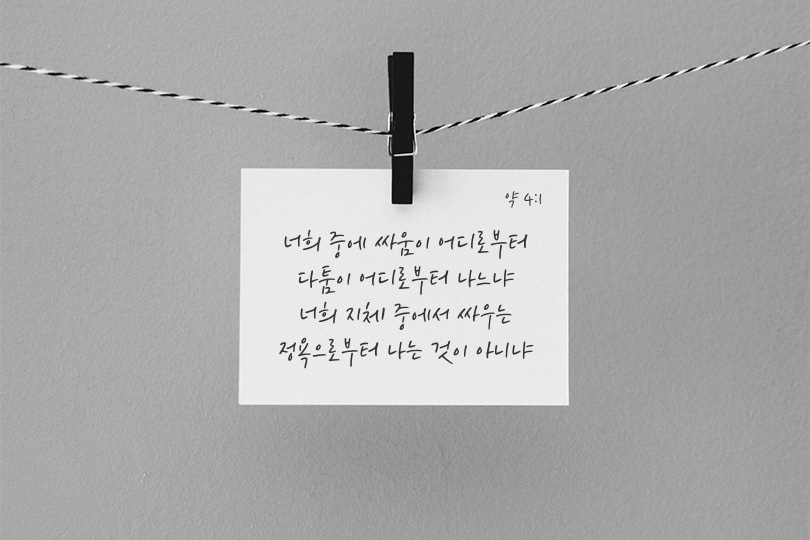 약 4:1
너희 중에 싸움이 어디로부터
다툼이 어디로부터 나느냐
너희 지체 중에서 싸우는
정욕으로부터 나는 것이 아니냐